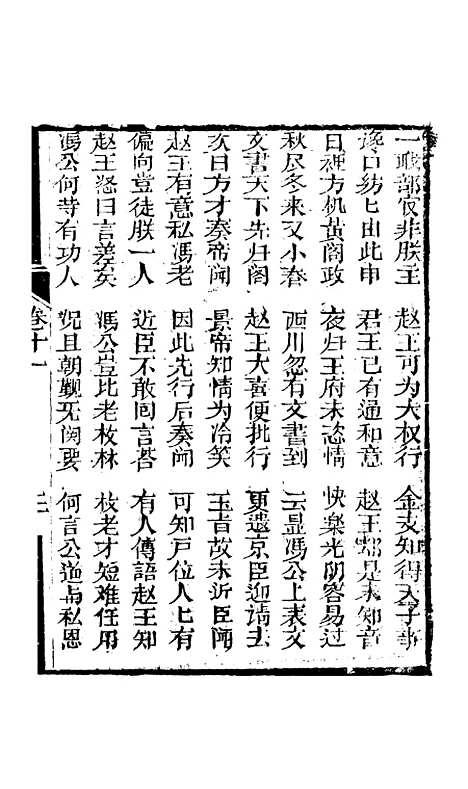 一職部官非朕主　赵王可为大权行　金支知得天子事
讒口紛匕由此申　君王已有通和意　赵王都是未知音
日裡方机黄阁政　夜归王府未恣情　快楽光阴容易过
秋尽冬来又小春　西川忽有文書到　云是馮公上表文
文書天下先归阁　赵王大喜便批行　更遣京臣迎请去
次日方才奏帝闻　景帝知情为冷笑　玉音故未沂臣闻
赵王有意私馮老　因此先行后奏闻　可知戸位人匕有
偏向豈徒朕一人　近臣不敢囘言荅　有人傳語赵王知
赵王怒曰言差矣　馮公豈比老枚林　枚老才短难任用
馮公何等有功人　况且朝觐无阙要　何言公迆与私恩
卷十一　二